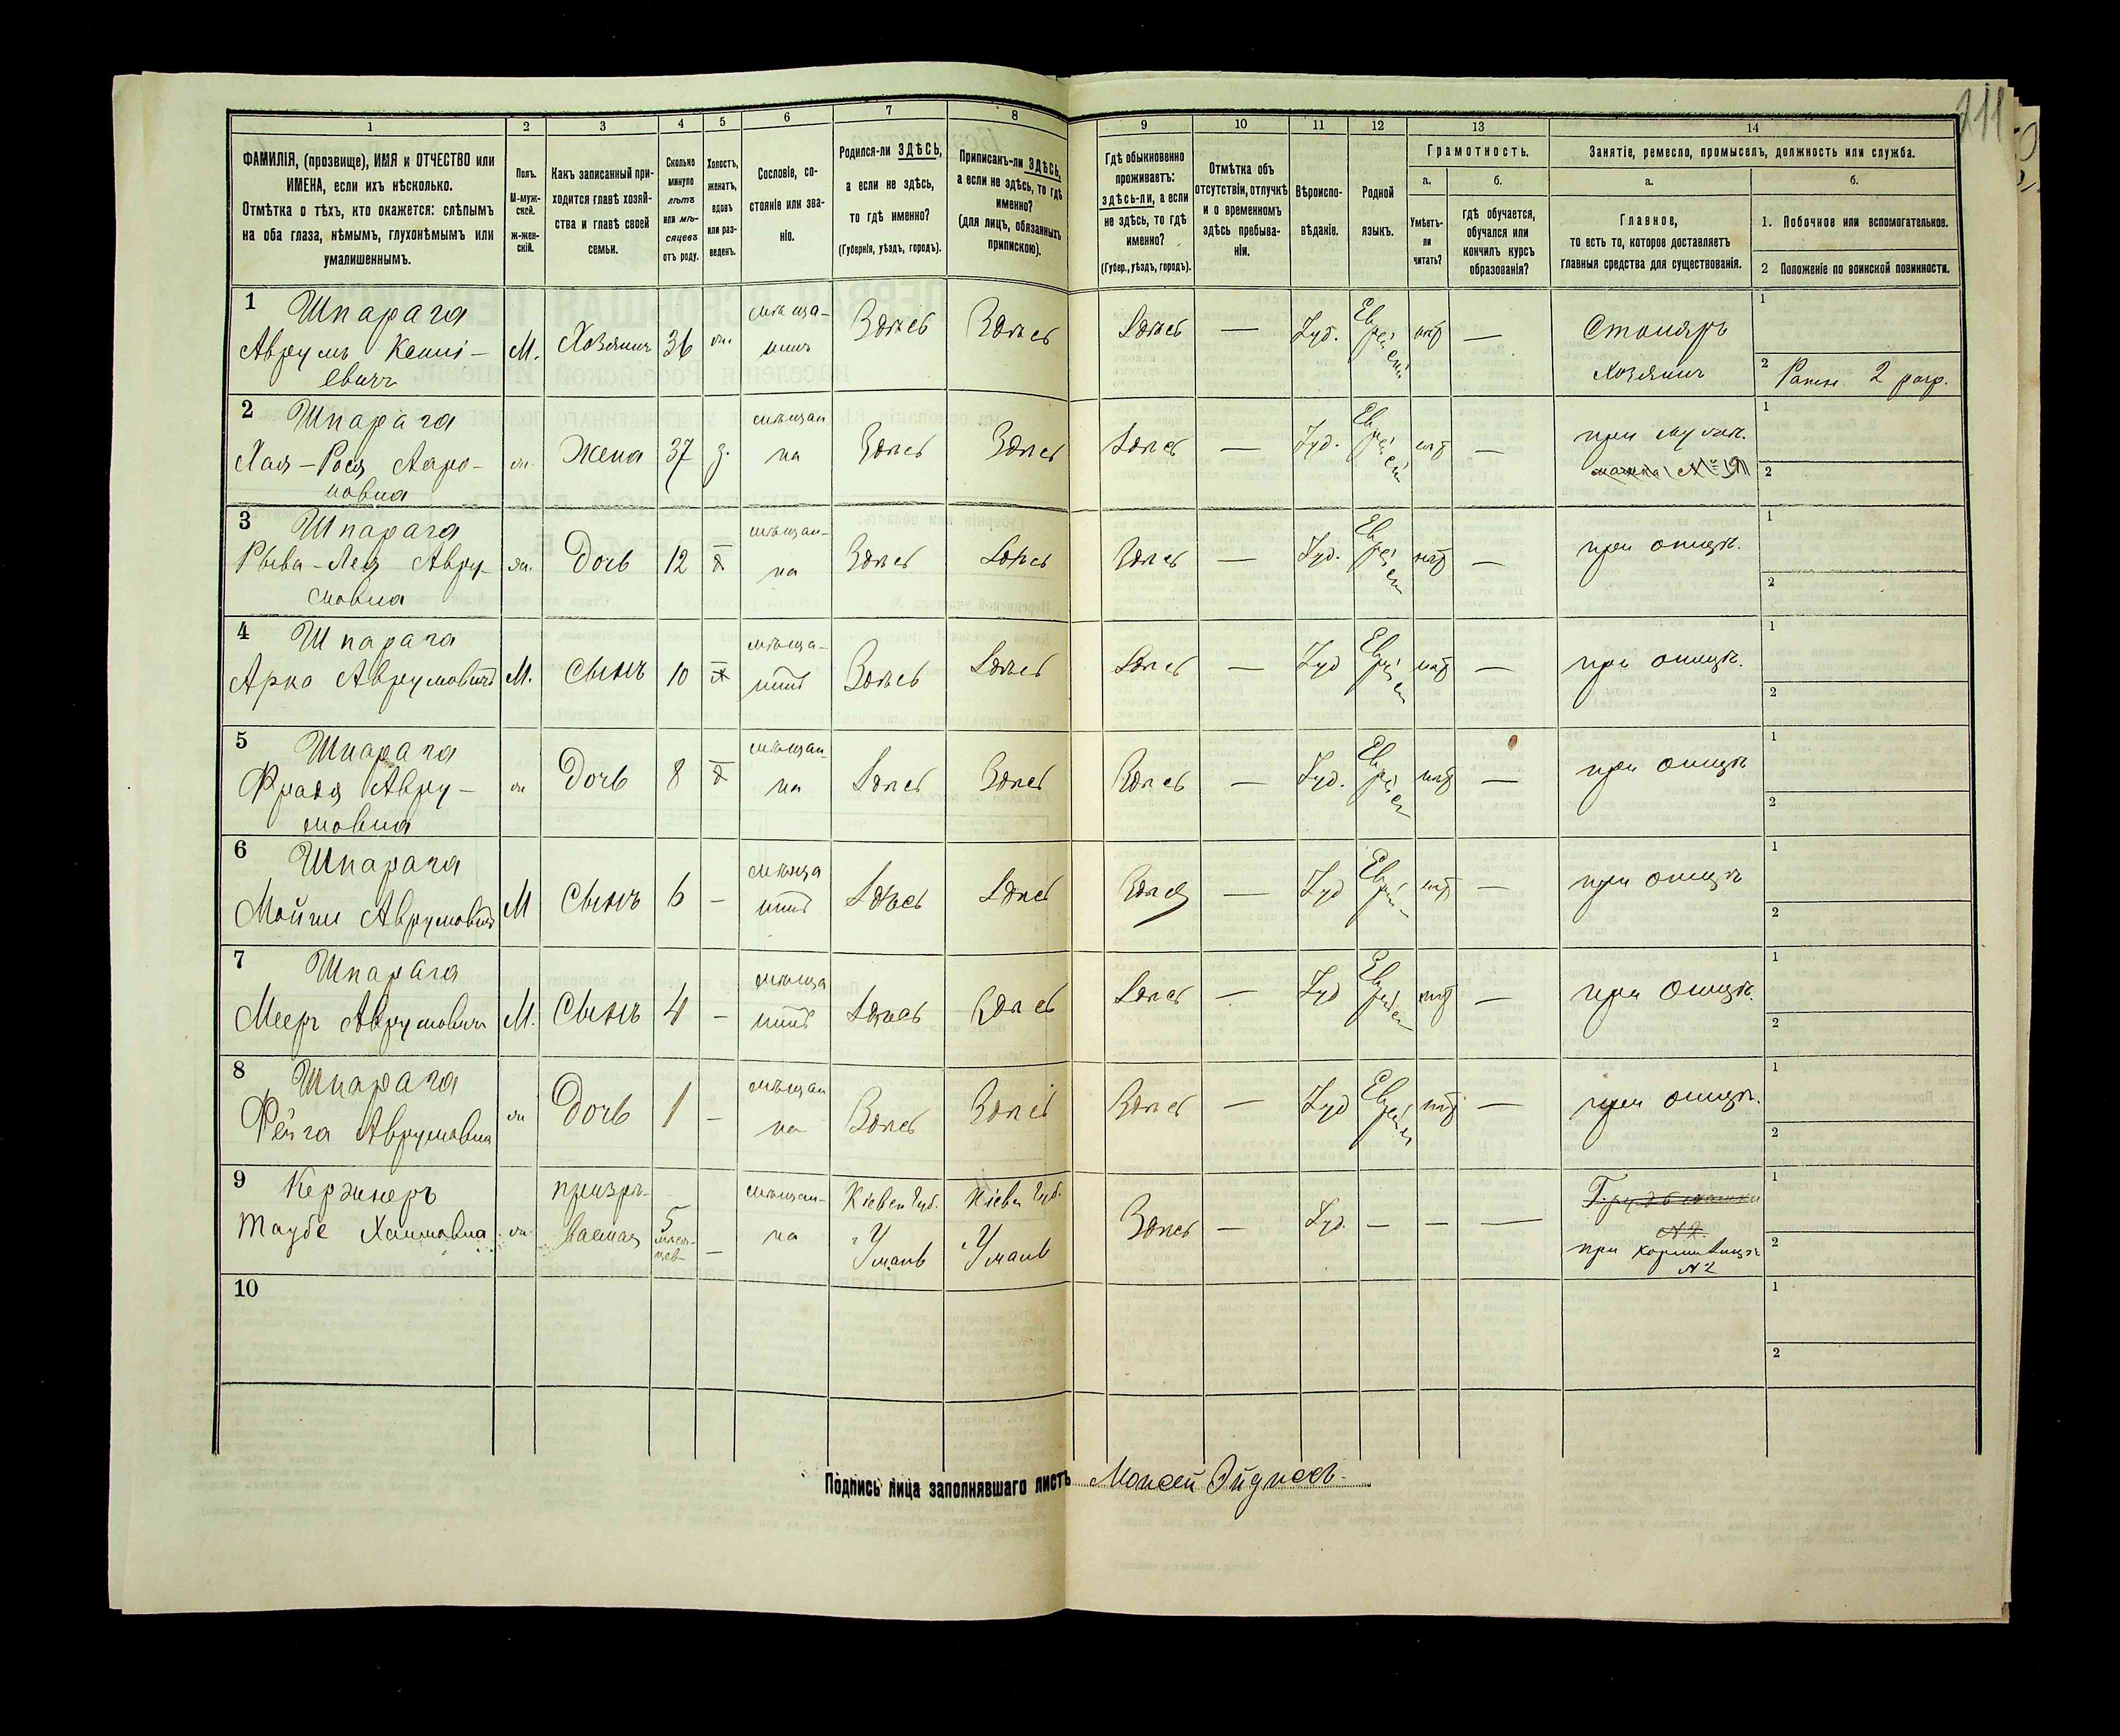 211
1 2 3 4 5 6 7 8 9 10 11 12 13 14
ФАМИЛІЯ, (прозвище), ИМЯ и ОТЧЕСТВО или
ИМЕНА, если ихъ нѣсколько.
Отмѣтка о тѣхъ, кто окажется: слѣпымъ
на оба глаза, нѣмымъ, глухонѣмымъ или
умалишеннымъ.
Полъ.
М-муж-
ской.
Ж-жен-
скій.
Какъ записанный при-
ходится главѣ хозяй-
ства и главѣ своей
семьи.
Сколько
минуло
лѣтъ
или мѣ-
сяцевъ
отъ роду.
Холостъ,
женатъ,
вдовъ
или раз-
веденъ.
Сословіе, со-
стояніе или зва-
ніе.
Родился-ли ЗДѢСЬ,
а если не здѣсь,
то гдѣ именно?
(Губернія, уѣздъ, городъ).
Приписанъ-ли ЗДѢСЬ,
а если не здѣсь, то гдѣ
именно?
(для лицъ, обязанныхъ
припискою).
Гдѣ обыкновенно
проживаетъ:
здѣсь-ли, а если
не здѣсь, то гдѣ
именно?
(Губер., уѣздъ, городъ).
Отмѣтка объ
отсутствіи, отлучкѣ
и о временномъ
здѣсь пребыва-
ніи.
Вѣроиспо-
вѣданіе.
Родной
языкъ.
Грамотность.
а.
Умѣетъ-
ли
читать?
б.
гдѣ обучается,
обучался или
кончилъ курсъ
образованія?
Занятіе, ремесло, промыселъ, должность или служба.
а.
Главное,
то есть то, которое доставляетъ
главныя средства для существованія.
б.
1. Побочное или вспомогательное.
2 Положеніе по воинской повинности.
1 Шпарага
Аврумъ
евичъ
М. Хозяинъ 36 ж.
мѣща-
нинъ
Здѣсь Здѣсь Здѣсь — Іуд. нѣт —
Столяръ
хозяинъ
1
2 Ратн. 2 разр.
2 Шпарага
Хая-РосяАаро-
новна
ж. Жена 37 з.
мѣщан
ка
Здѣсь Здѣсь Здѣсь — Іуд. нѣт —
при мужѣ.
1
2
3 Шпарага
Рыва-Лея Авру-
мовна
ж. Дочь 12
мѣщан-
ка
Здѣсь Здѣсь Здѣсь — Іуд. нѣт —
при отцѣ.
1
2
4 Шпарага
Арко Аврумовичъ
М. Сынъ 10
мѣща-
нинъ
Здѣсь Здѣсь Здѣсь — Іуд нѣт —
при отцѣ.
1
2
5 Шпарага
Фрадя Авру-
мовна
ж Дочь 8
мѣщан
ка
Здѣсь Здѣсь Здѣсь — Іуд. нѣт —
при отцѣ
1
2
6 Шпарага
Мойше Аврумовичъ
М Сынъ 6 —
мѣща
нинъ
Здѣсь Здѣсь Здѣсь — Іуд нѣт —
при отцѣ
1
2
7 Шпарага
Мееръ Аврумовичъ
М. Сынъ 4 —
мѣща
нинъ
Здѣсь Здѣсь Здѣсь — Іуд нѣт —
при отцѣ.
1
2
8 Шпарага
Фейга Аврумовна
ж Дочь 1 —
мѣщан
ка
Здѣсь Здѣсь Здѣсь — Іуд нѣт —
при отцѣ.
1
2
9 Кержнеръ
Таубе Хаимовна
ж.
призрѣ-
ваемая
5
мѣся-
цев
—
мѣщан-
ка
Кіевск Губ.
г Умань
Кіевск Губ.
г Умань
Здѣсь — Іуд. — — —
№ 2.
при кормилицѣ
№ 2
1
2
10
1
2
Подпись лица заполнявшаго листъ Моисей